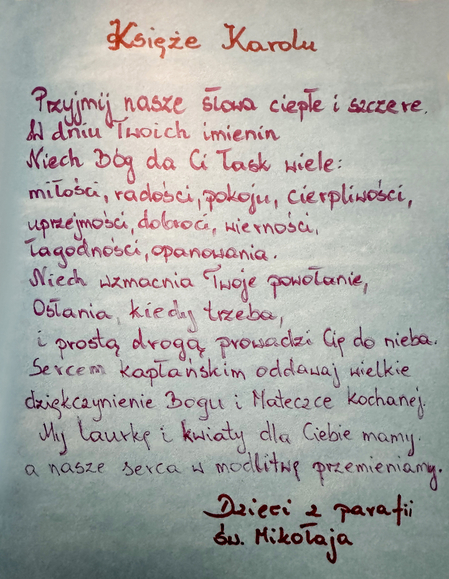 Księże Karolu
Przyjmij nasze słowa ciepłe i szczere.
W dniu Twoich imienin
Niech Bóg da Ci łask wiele:
miłości, radości, pokoju, cierpliwości,
uprzejmości, dobroci, wierności,
łagodności, opanowania.
Niech wzmacnia Twoje powołanie,
Osłania, kiedy trzeba,
i prostą drogą prowadzi Cię do nieba.
Sercem kapłańskim oddawaj wielkie
dziękczynienie Bogu i Mateczce kochanej.
My laurkę i kwiaty dla Ciebie mamy.
a nasze serca w modlitwę przemieniamy.
Dzieci z parafii
św. Mikołaja